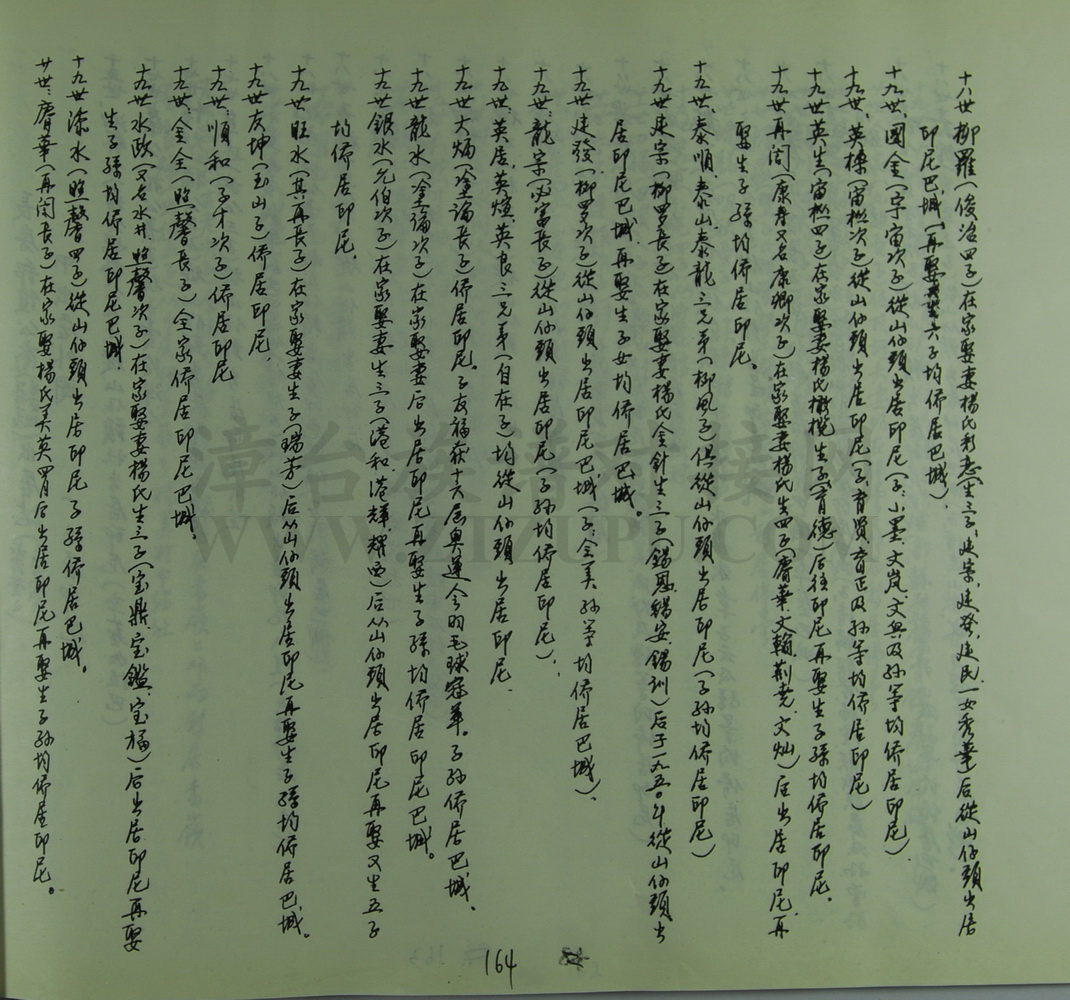 十八世柳羅(俊治四子)在家娶妻楊氏彩恋生三子:建宗、建發、建民一女秀華)后從山仔頭出居
印尼巴城(再娶六子均侨居巴城)
十九世、國金(宇宙次子)從山仔頭出居印尼(子:小墨、文嵐、文興及孙等均侨居印尼)
十九世、英棟(宙松次子)從山仔頭出居印尼(子:育賢、育正及孙等均侨居印尼)
十九世英生(宙松四子)在家娶妻楊氏橄欖生子(育德)后往印尼再娶生子孫均侨居印尼。
十九世再闰(康舟又名康卿次子)在家娶妻楊氏生四子(睿華、文翰、文灿)后出居印尼再
娶生子孫均侨居印尼。
十九世、泰順、泰山、泰龍三兄弟(柳凤子)俱從山仔頭出居印尼(子孙均侨居印尼)
十九世建宗(柳罗長子)在家娶妻楊氏金針生三子(錫恩、錫安、錫訓)后于一九五〇年從山仔頭出
居印尼巴城再娶生子女均侨居巴城。
十九世建發(柳罗次子)從山仔頭出居印尼巴城(子:金美、孙等均侨居巴城)、
十九世:龍宗(必富長子)從山仔頭出居印尼(子孙均侨居印尼)、
十九世、英居、英煊、英良三兄弟(自在子)均從山仔頭出居印尼、
十九世大炳(塗論長子)侨居印尼。子友福获十六屆奥運会羽毛球冠軍。子孙侨居巴城。
十九世龍水(塗論次子)在家娶妻后出居印尼再娶生子孫均侨居印尼巴城。
十九世銀水(允伯次子)在家娶妻生三子(港和、港輝、耀西)后从山仔頭出居印尼再娶又生五子
均侨居印尼。
十九世旺水(其再長子)在家娶妻生子(瑞芳)后从山仔頭出居印尼再娶生子孫均侨居巴城。
十九世友坤(玉山子)侨居印尼、
十九世:順和(子才次子)侨居印尼
十九世:金全(照馨長子)全家侨居印尼巴城。
十九世水政(又名水井、照馨次子)在家娶妻楊氏生三子(宝鼎、宝鑑、宝福)后出居印尼再娶
生子孫均侨居印尼巴城.
十九世添水(照馨四子)從山仔頭出居印尼子孫侨居巴城。
廿世:睿華(再闰長子)在家娶楊氏美英四月后出居印尼再娶生子孙均侨居印尼。
164
漳台族譜對接
WWW.ZTZUPU.COM